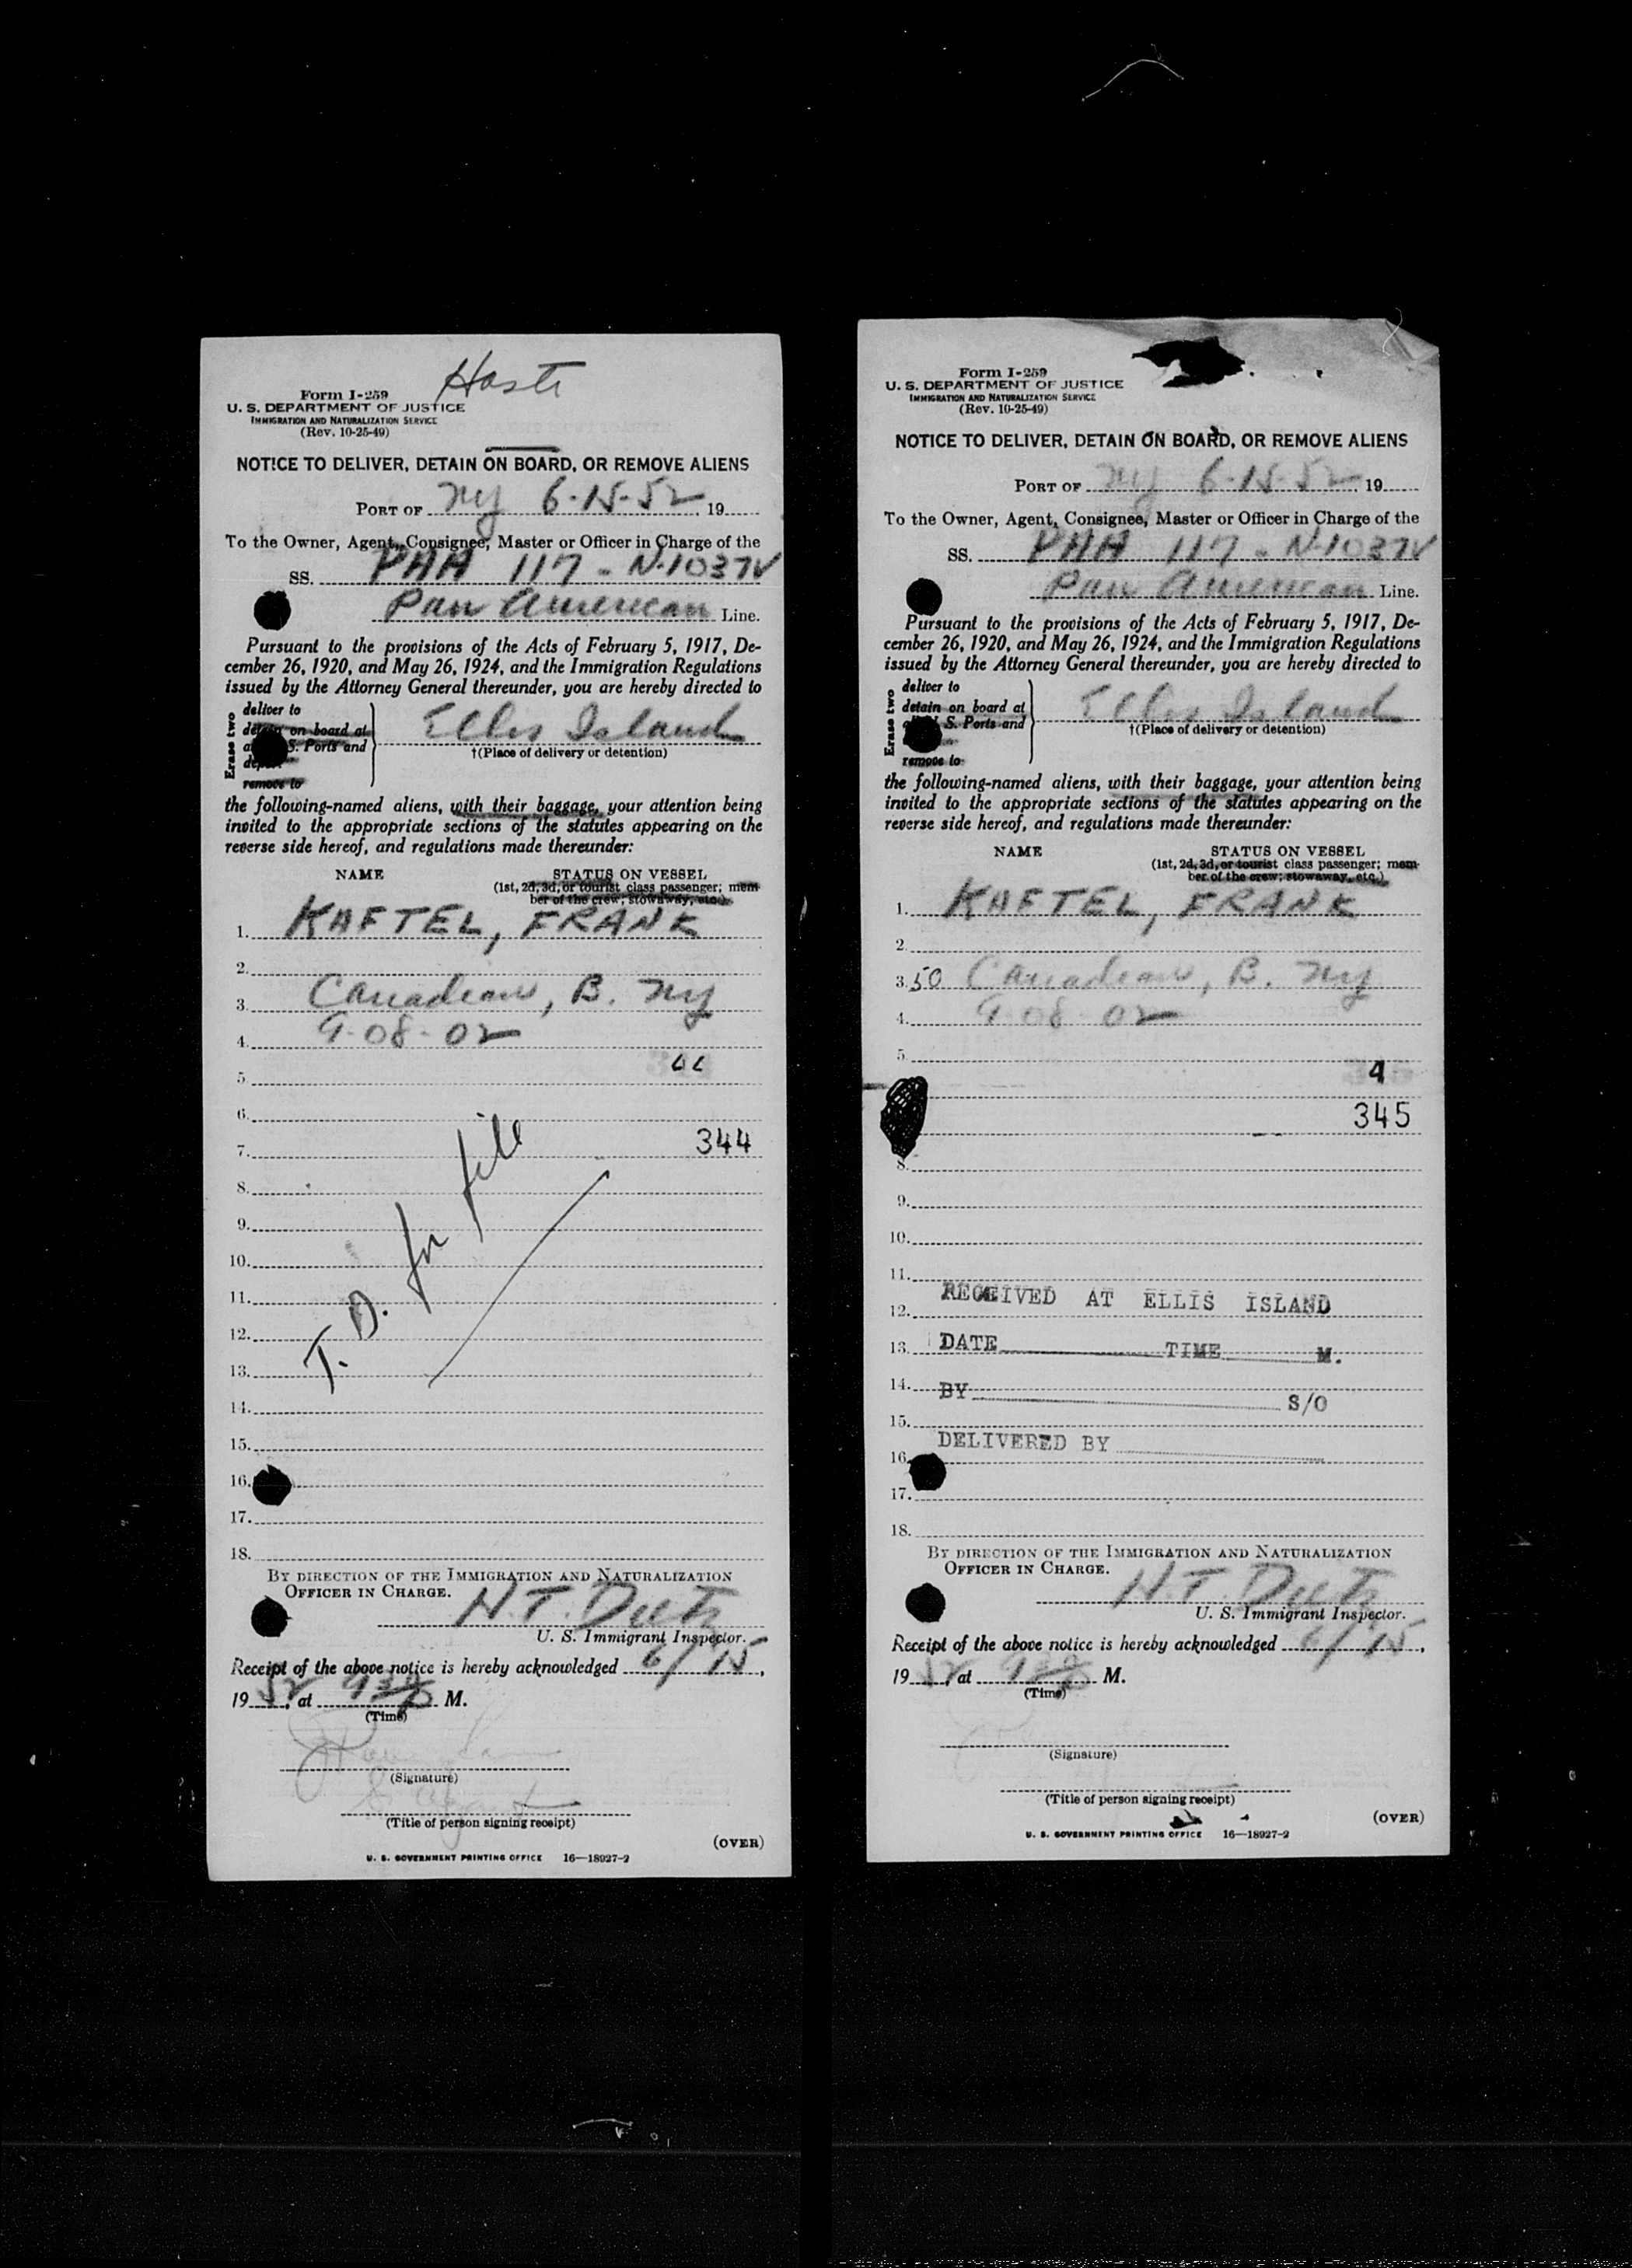 Form I-259
U. S. DEPARTMENT OF JUSTICE
IMMIGRATION AND NATURALIZATION SERVICE
(Rev. 10-25-49)
NOTICE TO DELIVER, DETAIN ON BOARD, OR REMOVE ALIENS
PORT OF NY 6-15-52, 19
To the Owner, Agent, Consignee, Master or Officer in Charge of the
SS. PAA 117 - N-1037V
Pan American Line.
Pursuant to the provisions of the Acts of February 5, 1917, De-
cember 26, 1920, and May 26, 1924, and the Immigration Regulations
issued by the Attorney General thereunder, you are hereby directed to
Erase two
deliver to
detain on board at
S. Ports and
remove to
Ellis Island
†(Place of delivery or detention)
the following-named aliens, with their baggage, your attention being
invited to the appropriate sections of the statutes appearing on the
reverse side hereof, and regulations made thereunder:
NAME STATUS ON VESSEL
(1st, 2d, 3d, or tourist class passenger; mem-
ber of the crew; stowaway, etc.)
1. KAFTEL, FRANK
2.
3. Canadian, B. NY
4. 9-08-02
5.
6.
7. 344
8.
9.
10.
11.
12.
13.
14.
15.
16.
17.
18.
T. D. for file
BY DIRECTION OF THE IMMIGRATION AND NATURALIZATION
OFFICER IN CHARGE.
H.T.
U. S. Immigrant Inspector.
Receipt of the above notice is hereby acknowledged 6/15,
19 52, at M.
(Time)
(Signature)
(Title of person signing receipt)
(OVER)
U. S. GOVERNMENT PRINTING OFFICE 16—18927-2
Form I-259
U. S. DEPARTMENT OF JUSTICE
IMMIGRATION AND NATURALIZATION SERVICE
(Rev. 10-25-49)
NOTICE TO DELIVER, DETAIN ON BOARD, OR REMOVE ALIENS
PORT OF NY 6-15-52, 19
To the Owner, Agent, Consignee, Master or Officer in Charge of the
SS. PAA 117 - N-1037V
Pan American Line.
Pursuant to the provisions of the Acts of February 5, 1917, De-
cember 26, 1920, and May 26, 1924, and the Immigration Regulations
issued by the Attorney General thereunder, you are hereby directed to
Erase two
deliver to
detain on board at
S. Ports and
remove to
Ellis Island
†(Place of delivery or detention)
the following-named aliens, with their baggage, your attention being
invited to the appropriate sections of the statutes appearing on the
reverse side hereof, and regulations made thereunder:
NAME STATUS ON VESSEL
(1st, 2d, 3d, or tourist class passenger; mem-
ber of the crew; stowaway, etc.)
1. KAFTEL, FRANK
2.
3. 50 Canadian, B. NY
4. 9-08-02
5.
4
345
8.
9.
10.
11.
12. RECEIVED AT ELLIS ISLAND
13. DATE TIME M.
14. BY S/O
15.
16. DELIVERED BY
17.
18.
BY DIRECTION OF THE IMMIGRATION AND NATURALIZATION
OFFICER IN CHARGE.
H.T.
U. S. Immigrant Inspector.
Receipt of the above notice is hereby acknowledged 6/15,
19 52, at M.
(Time)
(Signature)
(Title of person signing receipt)
(OVER)
U. S. GOVERNMENT PRINTING OFFICE 16—18927-2